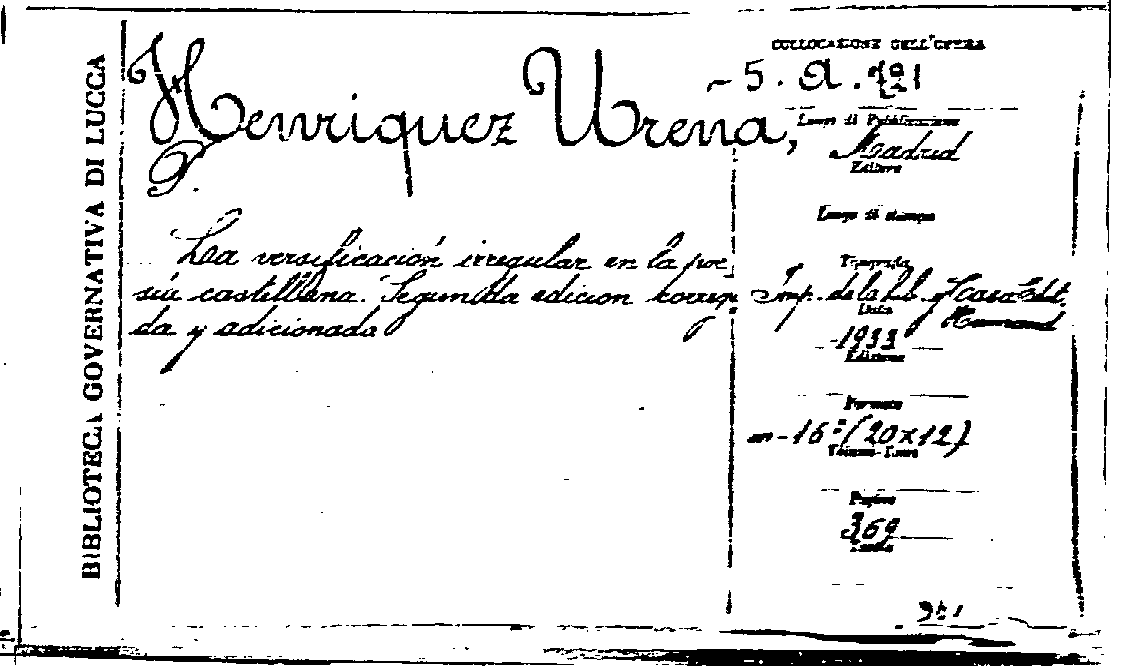 BIBLIOTECA GOVERNATIVA DI LUCCA
Henriquez Urena,
P.
La versificación irregular en la poe
sia castillana. Segunda edicion correg
da y adicionada
COLLOCAZIONE DELL'OPERA
5. a.
Luogo di Pubblicazione
Madrid
Editore
Luogo di stampa
Tipografia
Imp. de la lib. y Casa Edit.
Data
1933
Edizione
Formato
in-16º (20x12)
Volume-Tomi
Pagine
369
Tavole